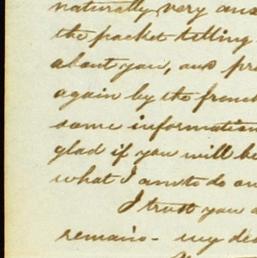 naturally very anx
the packet telling
about you, and pr
again by the french
some information
glad if you will be
what I am to do on
I trust you a
remains - my dea